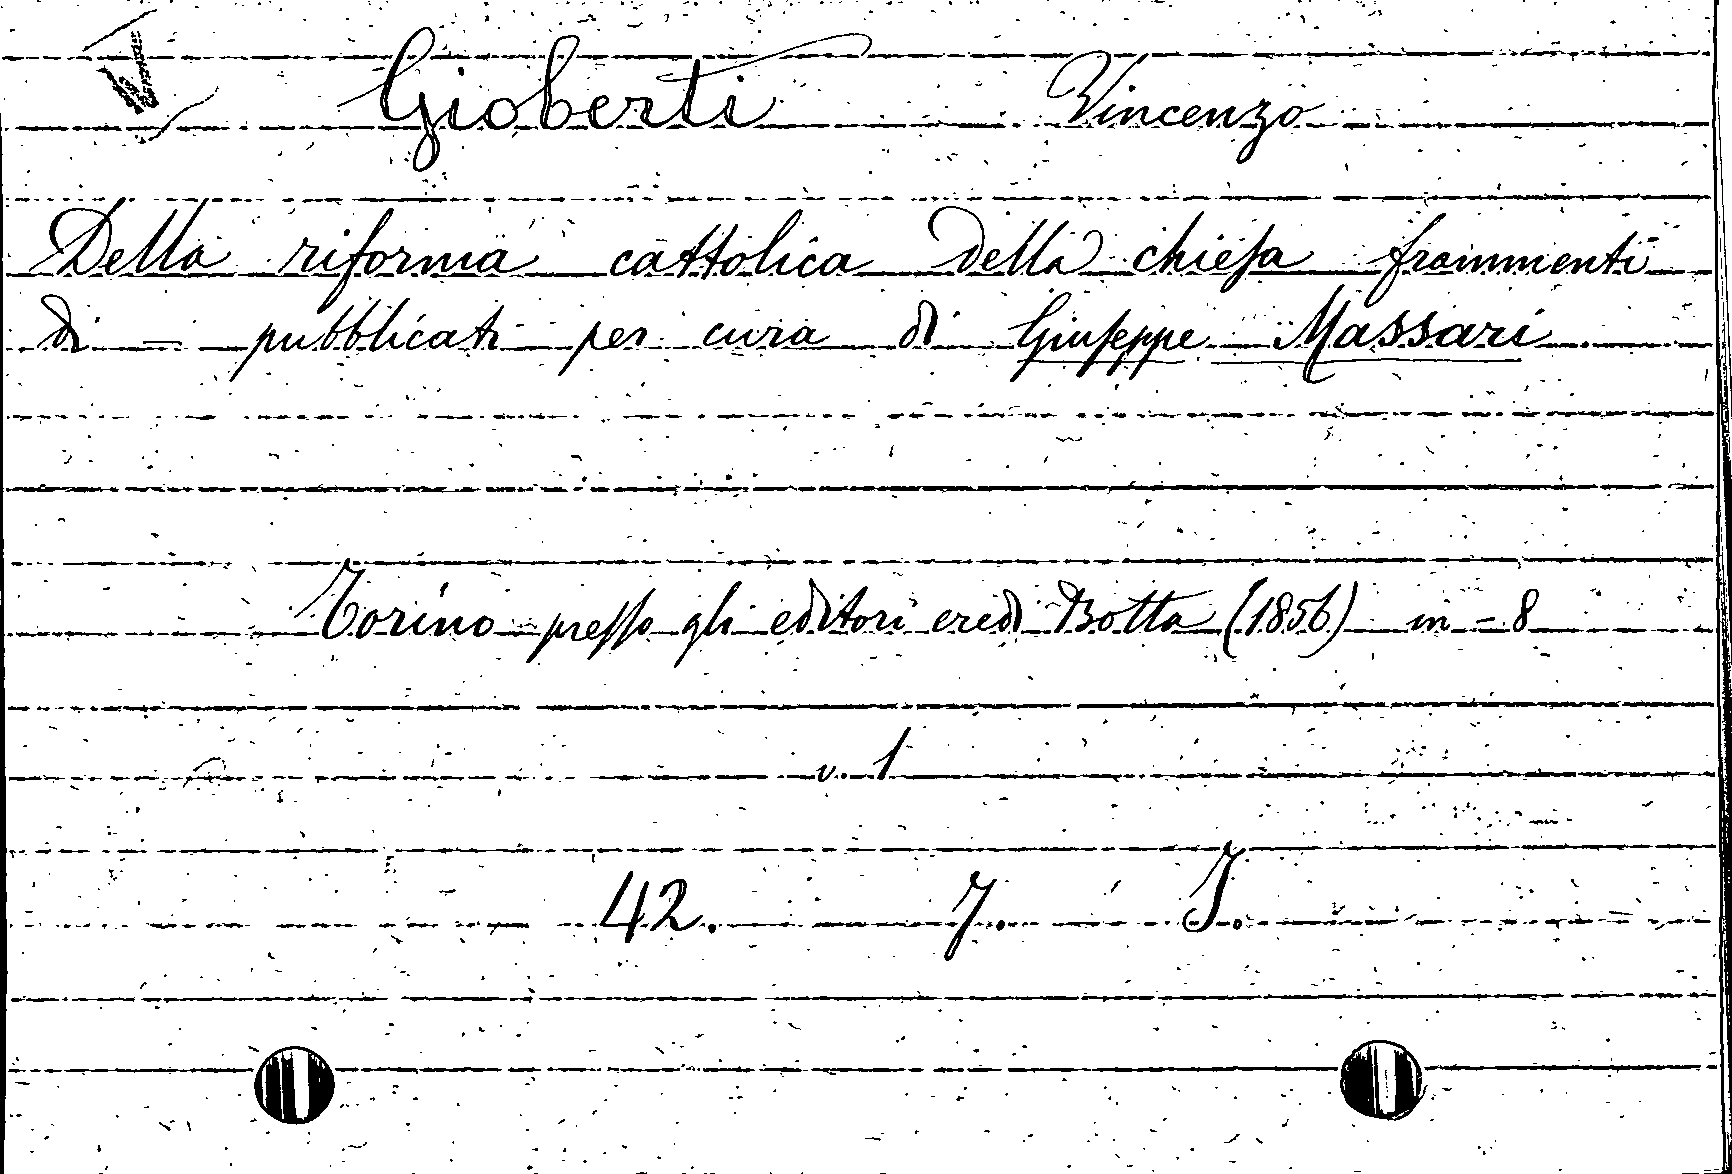 Gioberti Vincenzo
Della riforma cattolica della chiesa frammenti
di — pubblicati per cura di Giuseppe Massari
Torino presso gli editori eredi Botta (1856) in - 8
v. 1
42. 7. J.